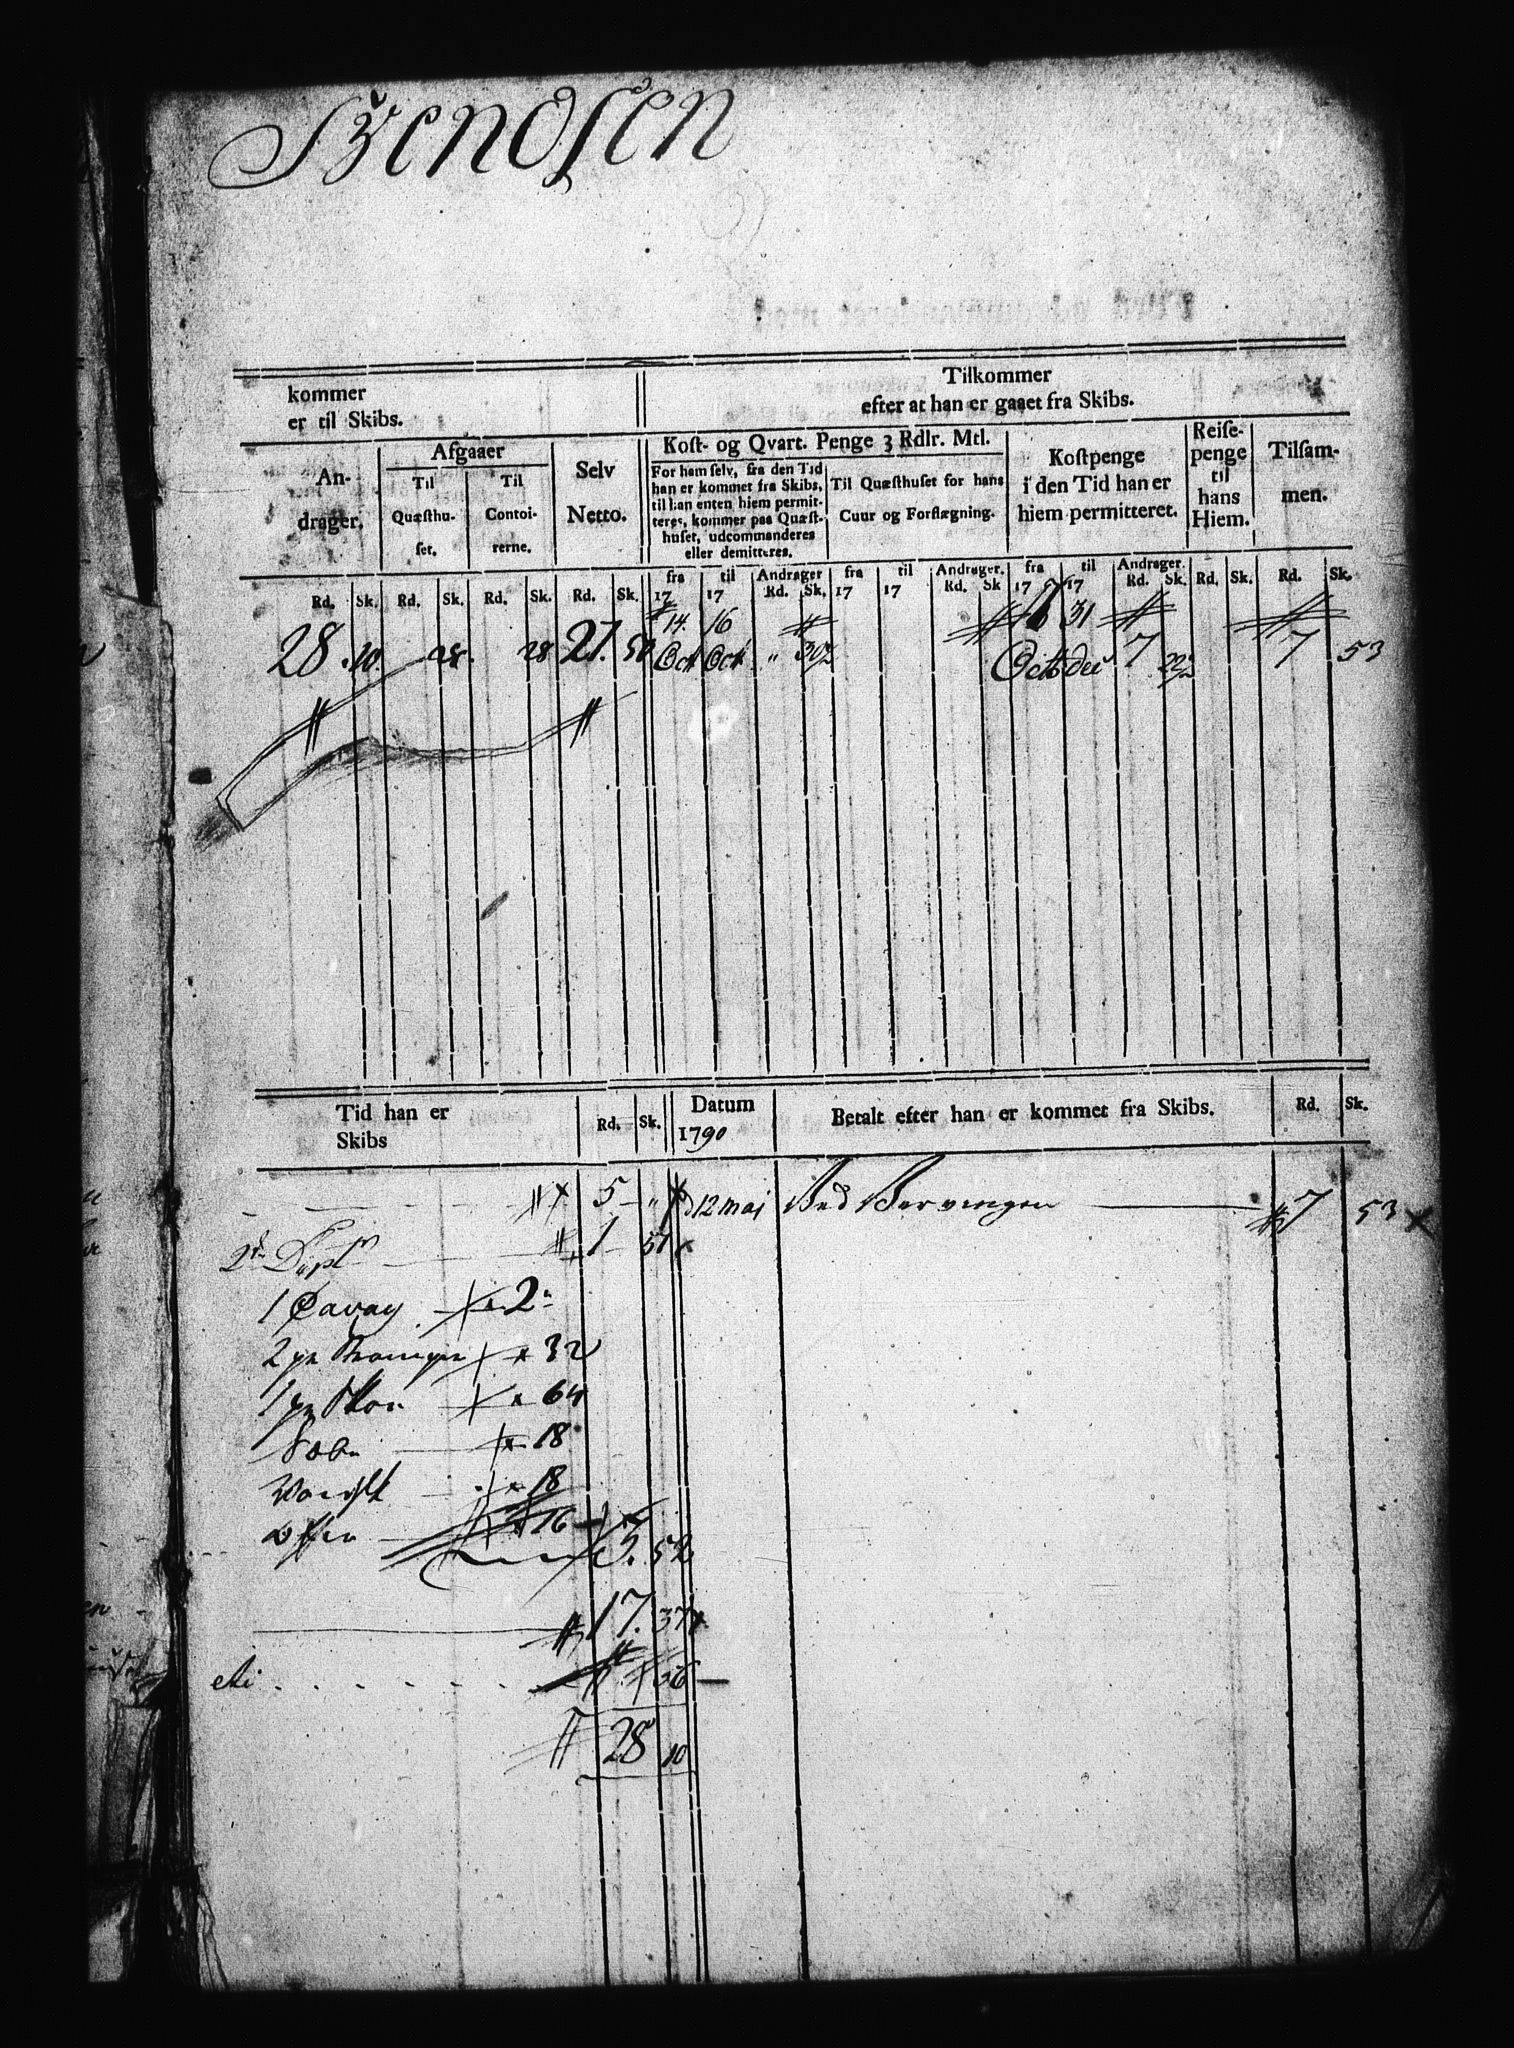 Svendsen
kommer
er til Skibs.
Tilkommer
efter at han er gaaet fra Skibs.
An-
drager.
Afgaaer
Til
Quæsthu-
set.
Til
Contoi-
rerne.
Selv
Netto.
Kost- og Qvart. Penge 3 Rdlr. Mtl.
For ham selv, fra den Tid
han er kommet fra Skibs,
til han enten hiem permit-
teres, kommer paa Quæst-
huset, udcommanderes
eller demitteres.
Til Quæsthuset for hans
Cuur og Forflægning.
Kostpenge
i den Tid han er
hiem permitteret.
Reise-
penge
til
hans
Hiem.
Tilsam-
men.
Rd. Sk. Rd. Sk. Rd. Sk. Rd. Sk. fra 17 til 17 Andrager Rd. Sk. fra 17 til 17 Andrager. Rd. Sk fra 17 til 17 Andrager. Rd. Sk. Rd. Sk. Rd. Sk.
14. 16 31
28. 10. 28. 28 27. 50 Oct Oct " 30½ Oct dec 7 22½ 7 53
Tid han er
Skibs
Rd. Sk. Datum
1790
Betalt efter han er kommet fra Skibs. Rd. Sk.
5 " d 12 maj Ved 7 53
1 57
1 2
2 pr 32
1 pr Skoe 64
Sæbe 18
18
16
5. 52
17. 37
56
28 10